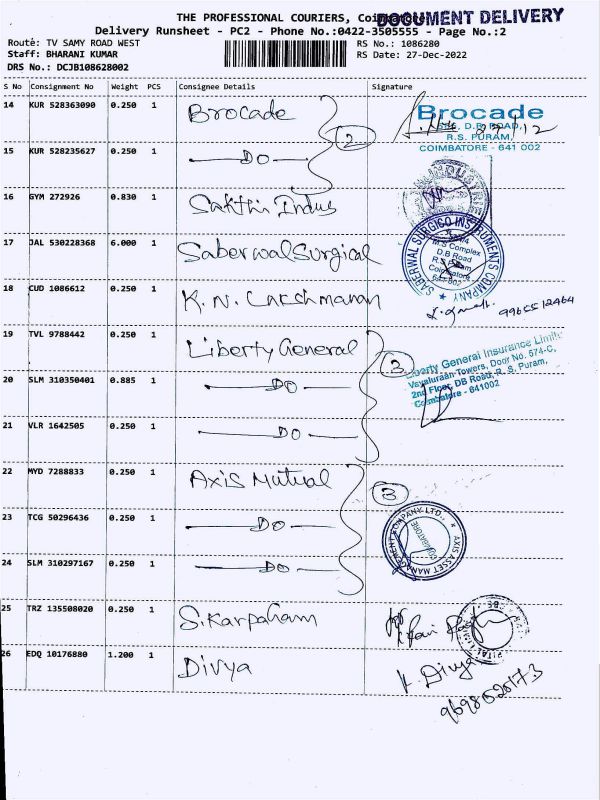 THE PROFESSIONAL COURIERS, Coimbatore
DOCUMENT DELIVERY
Delivery Runsheet - PC2 - Phone No.:0422-3505555 - Page No.:2
Route: TV SAMY ROAD WEST RS No.: 1086280
Staff: BHARANI KUMAR RS Date: 27-Dec-2022
DRS No.: DCJB108628002
S No Consignment No Weight PCS Consignee Details Signature
14 KUR 528363090 0.250 1 Brocade
Brocade
D.B. ROAD,
R.S. PURAM,
COIMBATORE - 641 002
2
15 KUR 528235627 0.250 1 DO
16 GYM 272926 0.830 1 Sakthi Indus
17 JAL 530228368 6.000 1 Saberwal Surgical
SABERWAL SURGICO INSTRUMENTS COMPANY
M.S Complex
D.B Road
R.S. Puram
Coimbatore
641 002
18 CUD 1086612 0.250 1 K. N. Lakshmanan
9965512464
19 TVL 9788442 0.250 1 Liberty General
3
Liberty General Insurance Limited
Vayaluraan Towers, Door No. 574-C,
2nd Floor, DB Road, R. S. Puram,
Coimbatore - 641002
20 SLM 310350401 0.885 1 DO
21 VLR 1642505 0.250 1 DO
22 MYD 7288833 0.250 1 Axis Mutual
3
23 TCG 50296436 0.250 1 DO
AXIS ASSET MANAGEMENT COMPANY LTD.,
COIMBATORE
24 SLM 310297167 0.250 1 DO
25 TRZ 135508020 0.250 1 S. Karpaham
26 EDQ 10176880 1.200 1 Divya
K. Divya